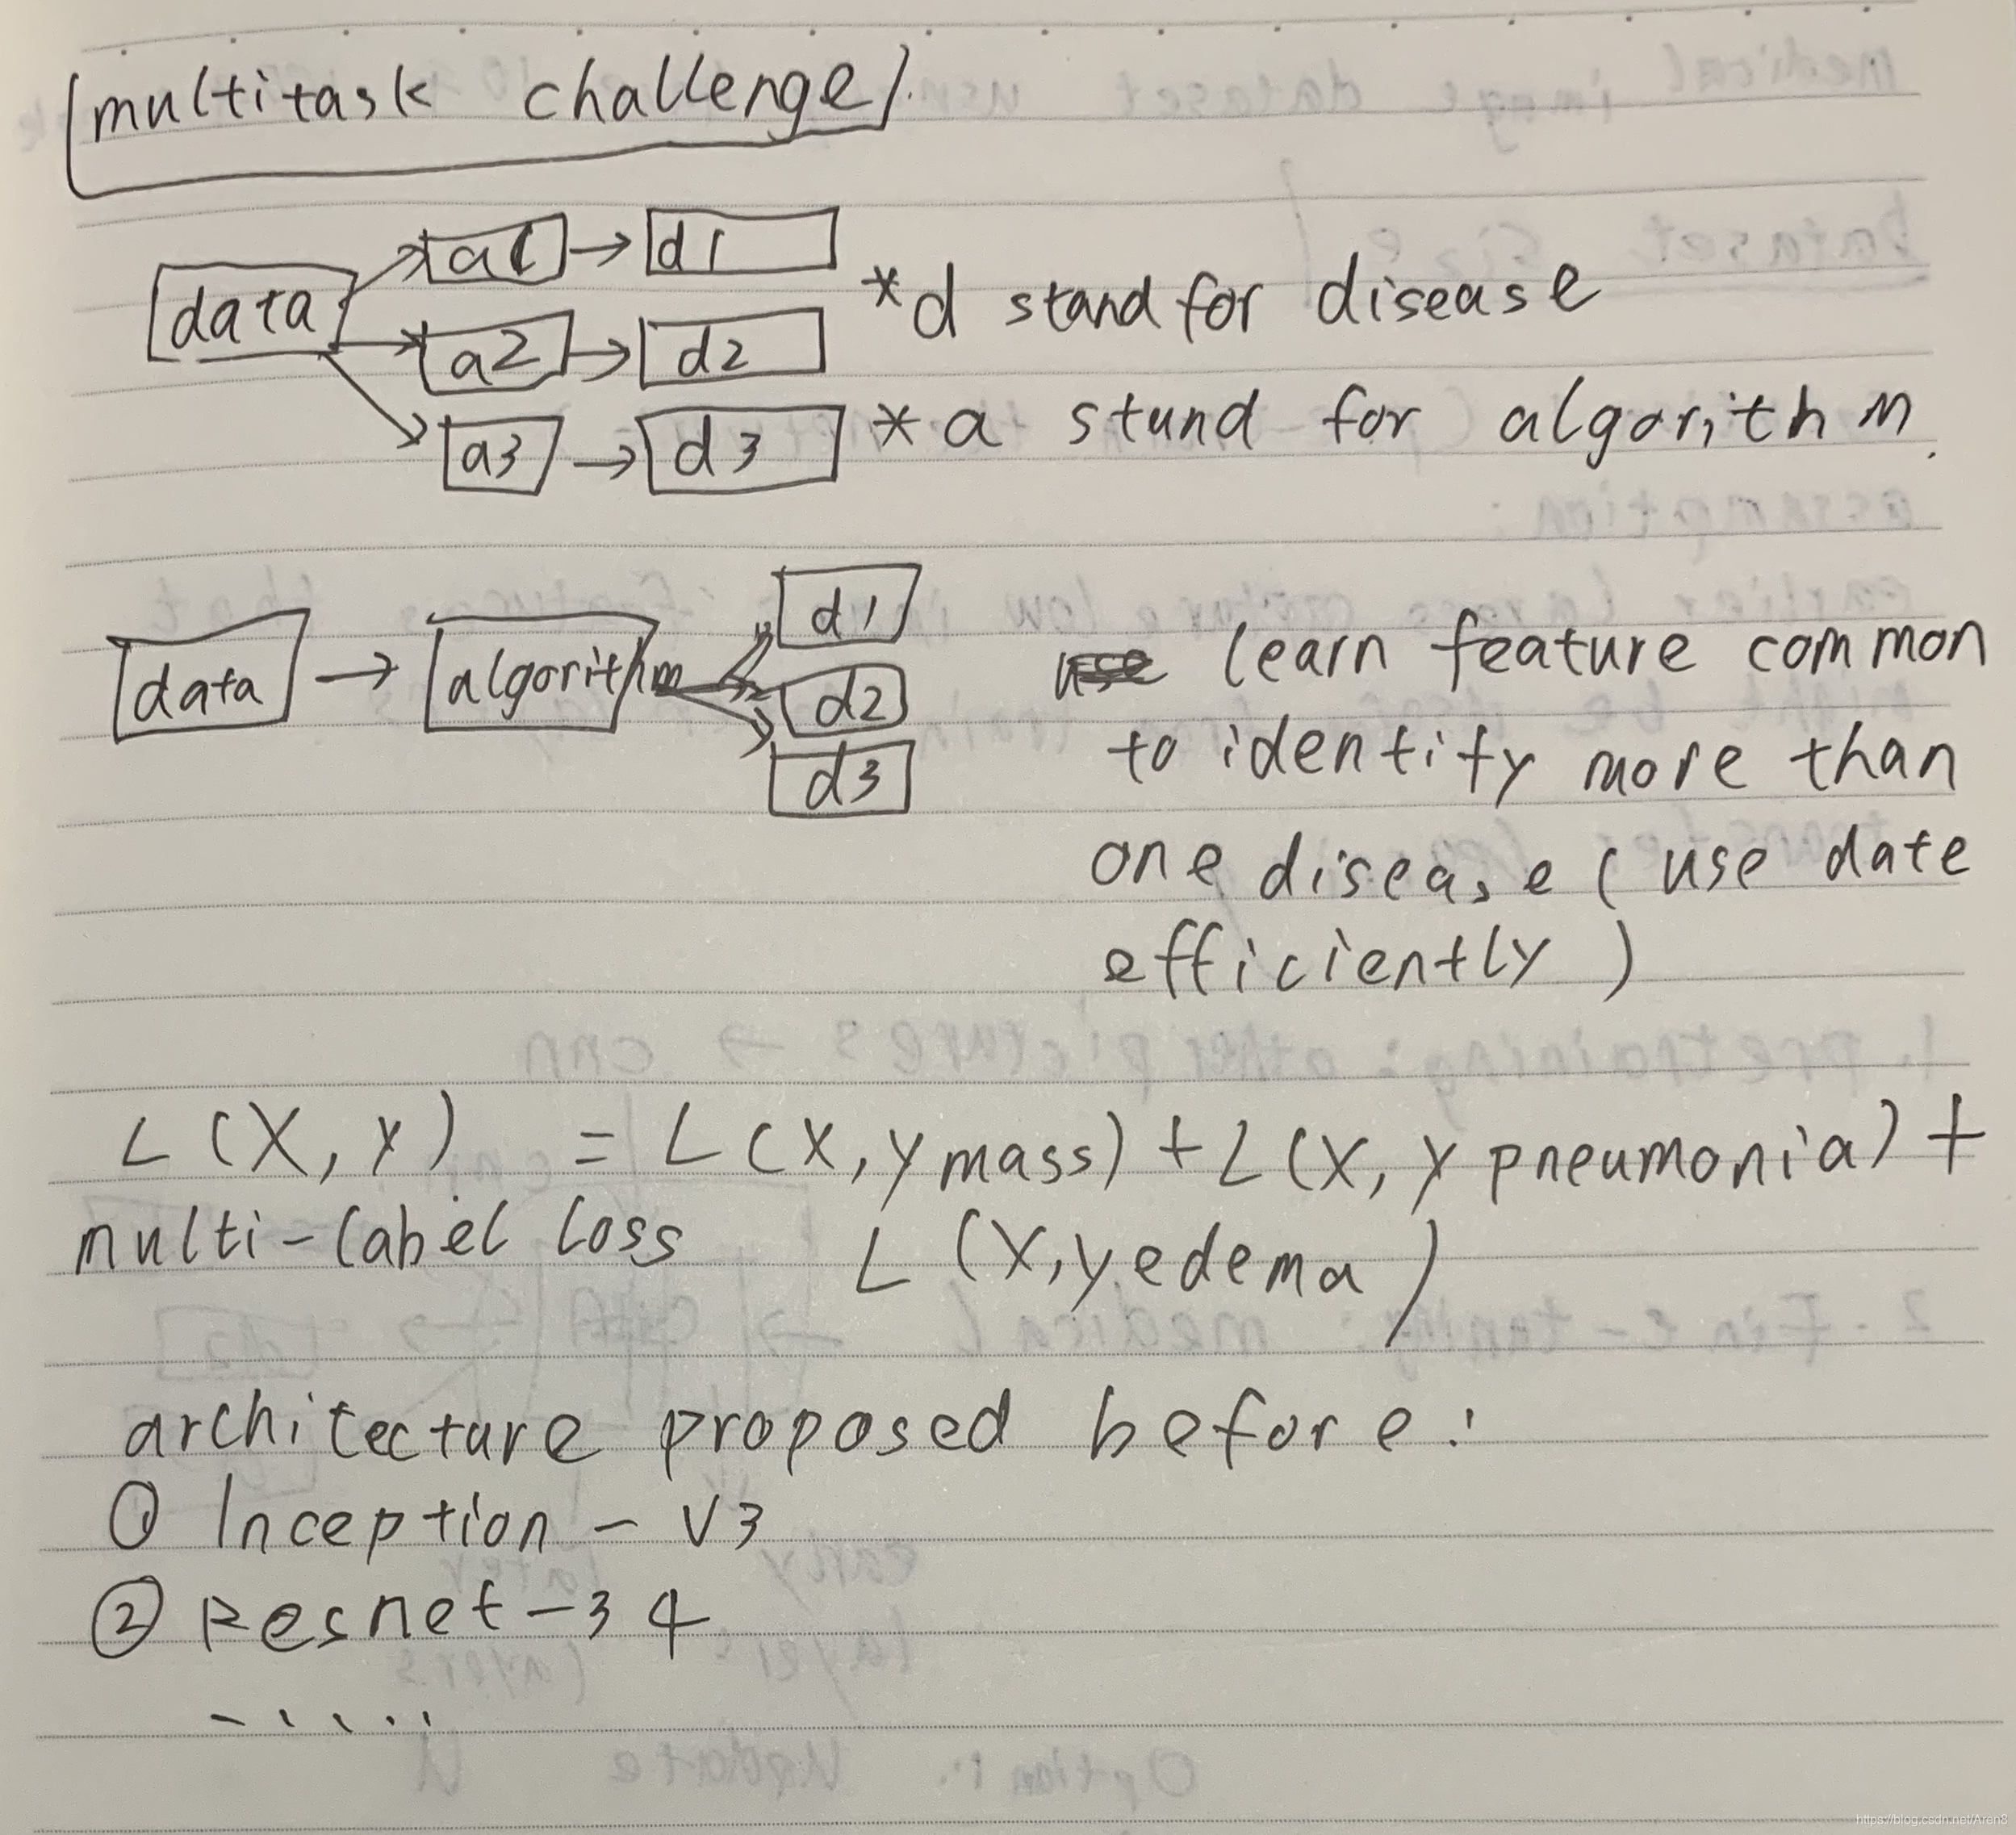 multitask challenge
data a1 → d1
a2 → d2
a3 → d3
*d stand for disease
*a stund for algorithm.
data → algorithm d1
d2
d3
learn feature common
to identify more than
one disease ( use date
efficiently )
L (X, y) = L (X, y mass) + L (X, y pneumonia) +
multi-label loss L (X, y edema)
architecture proposed before :
① Inception - V3
② Resnet - 34
.....
https://blog.csdn.net/Aren8